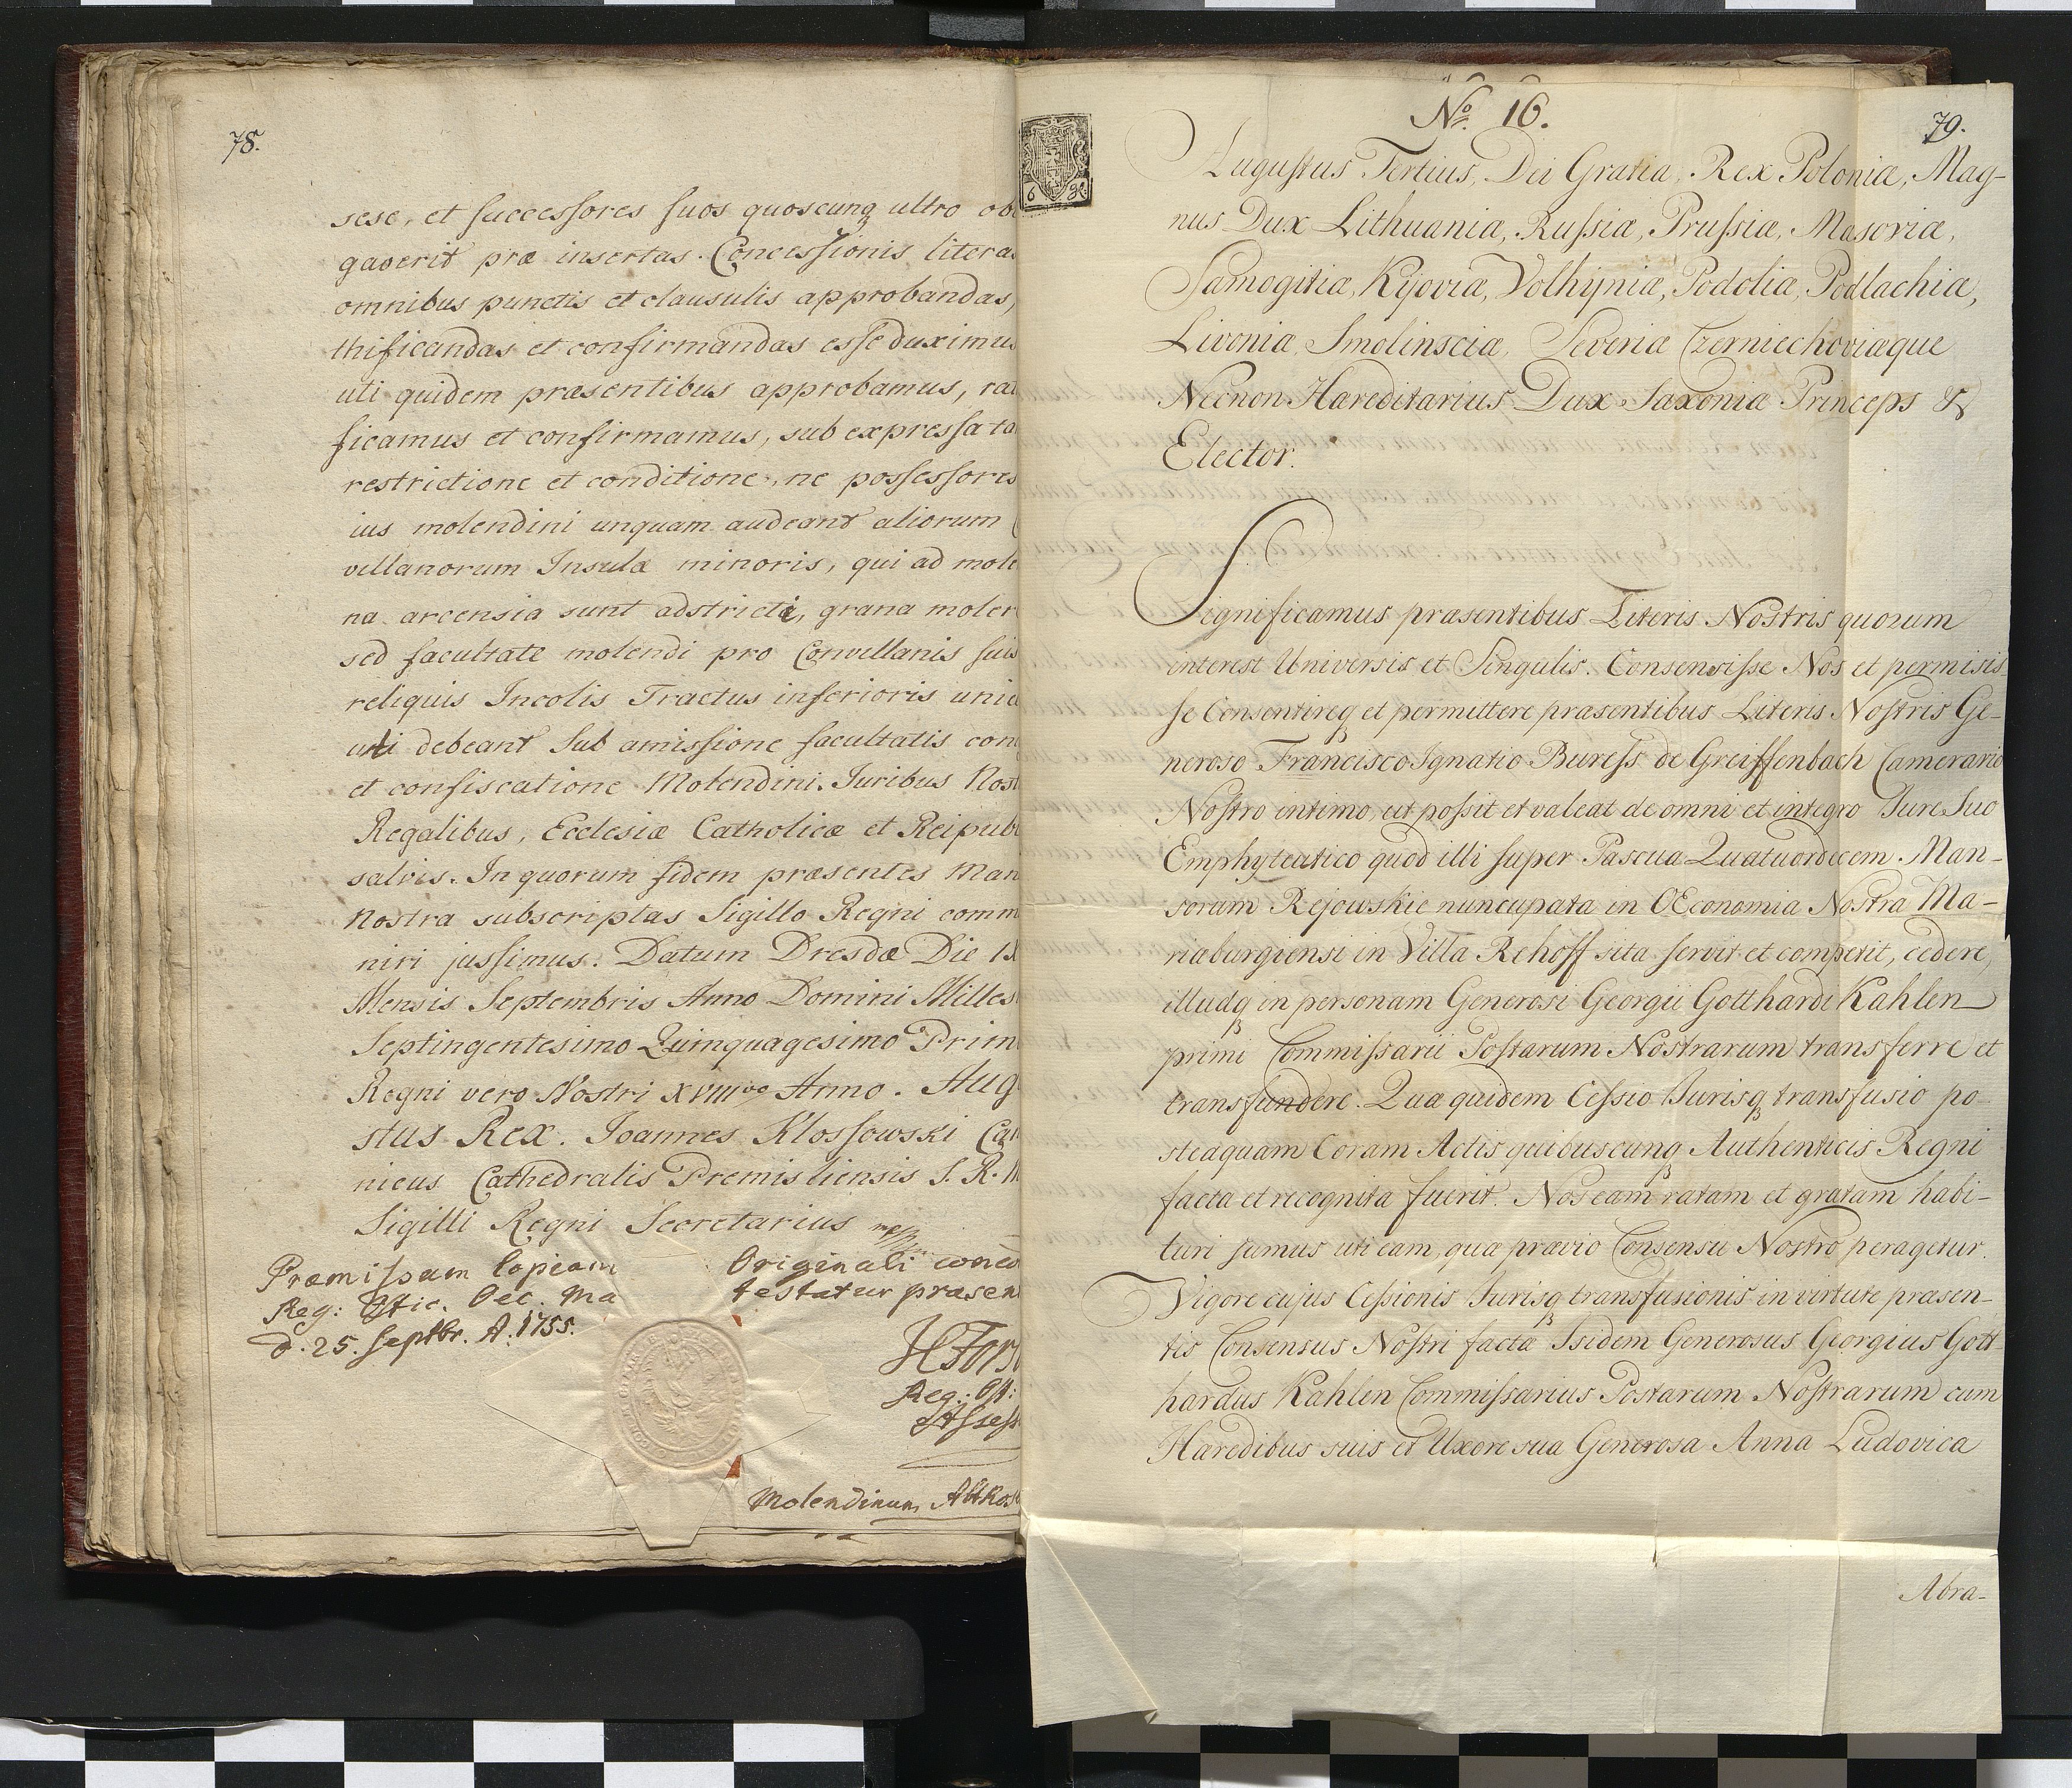 78.
sese, et successores suos quoscunq ultro ob
gaverit præ insertas Concessionis litera
omnibus punctis et clausulis approbandas,
thificandas et confirmandas esse duximus
uti quidem præsentibus approbamus, ra
ficamus et confirmamus, sub expressa ta
restrictione et conditione, ne possessores
ius molendini unquam audeant aliorum
villanorum Insulæ minoris, qui ad mole
na arcensia sunt adstricti, grana moler
sed facultate molendi pro Convillanis suis
reliquis Incolis Tractus inferioris unic
uti debeant sub amissione facultatis con
et confiscatione Molendini. Juribus Nost
Regalibus, Ecclesiæ Catholicæ et Reipub
salvis. In quorum fidem præsentes Man
Nostra subscriptas Sigillo Regni comm
niri jussimus. Datum Dresdæ Die
Mensis Septembris Anno Domini Milles
Septingentesimo Quinquagesimo Prim
Regni vero Nostri XVIIIvo Anno. Aug
stus Rex. Joannes Klossowski Ca
nicus Cathedralis Premisliensis S. R. M
Sigilli Regni Secretarius mpp
Præmissam Copiam Originali conco
Reg: Offic. Oec. Ma testatur præsen
d. 25. Septbr. A. 1755.
Reg: Off:
Assess
Molendinum
No. 16.
79.
6 gr.
Augustus Tertius, Dei Gratia, Rex Poloniæ, Mag-
nus Dux Lithuaniæ, Russiæ, Prussiæ, Masoviæ,
Samogitiæ, Kijoviæ, Volhijniæ, Podoliæ, Podlachiæ,
Livoniæ Smolinsciæ, Severiæ Czerniechoviæque
Necnon Hæreditarius Dux Saxoniæ Princeps &
Elector.
Significamus præsentibus Literis Nostris quorum
interest Universis et Singulis. Consensisse Nos et permisis-
se Consentireq et permittere præsentibus Literis Nostris Ge-
neroso Francisco Ignatio Buress de Greiffenbach Camerario
Nostro intimo, ut possit et valeat de omni et integro Jure Suo
Emphyteutico quod illi super Pascua Quatuordecem Man-
sorum Rejowskie nuncupata in OEconomia Nostra Ma-
riaburgiensi in Villa Rehoff sita servit et competit, cedere,
illudq in personam Generosi Georgii Gotthardi Kahlen
primi Commissarii Postarum Nostrarum transferre et
transfundere. Quæ quidem Cessio Jurisq transfusio po-
steaquam Coram Actis quibuscunq Authenticis Regni
facta et recognita fuerit. Nos eam ratam et gratam habi-
turi sumus uti eam, quæ prævio Consensu Nostro peragetur.
Vigore cujus Cessionis Jurisq transfusionis in virtute præsen-
tis Consensus Nostri facta Isidem Generosus Georgius Gott-
hardus Kahlen Commissarius Postarum Nostrarum cum
Hæredibus suis et Uxore sua Generosa Anna Ludovica
Abra-